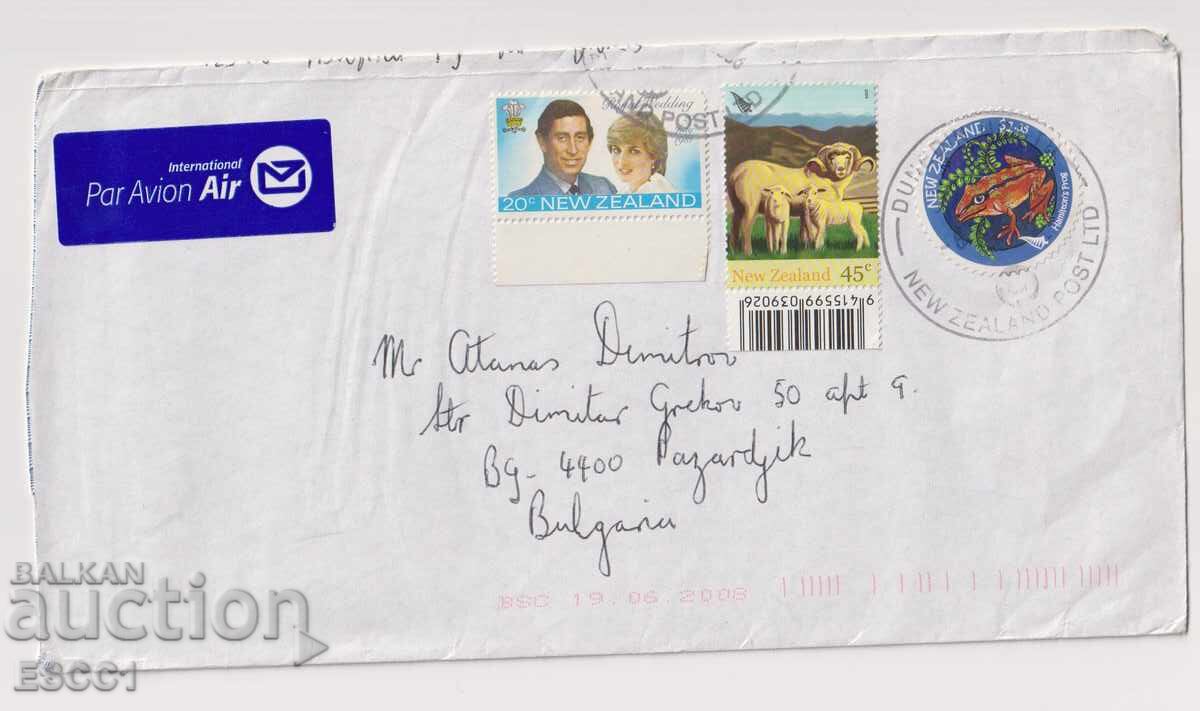 International
Par Avion Air
Royal Wedding
1981
20c NEW ZEALAND
New Zealand 45c
9415599039026
NEW ZEALAND
Hamilton's Frog
NEW ZEALAND POST LTD
Mr Atanas Dimitrov
Str Dimitar Grekov 50 apt 9.
Bg- 4400 Pazardjik
Bulgaria
BSC 19.06.2008
BALKAN
auction
ESCC1